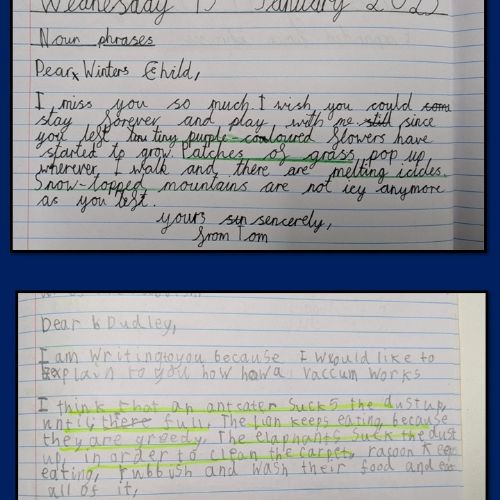 Wednesday 15th January 2025
Noun phrases
Dear Winters Child,
I miss you so much. I wish you could
stay forever and play with me still since
you left tiny purple-coloured flowers have
started to grow. Patches of grass pop up
wherever I walk and there are melting icicles.
Snow-topped mountains are not icy anymore
as you left.
yours sincerely,
from Tom
Dear Dudley,
I am writing to you because I would like to
explain to you how a vaccum works
I think that an anteater sucks the dust up,
until, there full. The lion keeps eating because
they are greedy. The elaphants suck the dust
up, in order to clean the carpet, racoon keep
eating, rubbush and wash their food and eat
all of it,